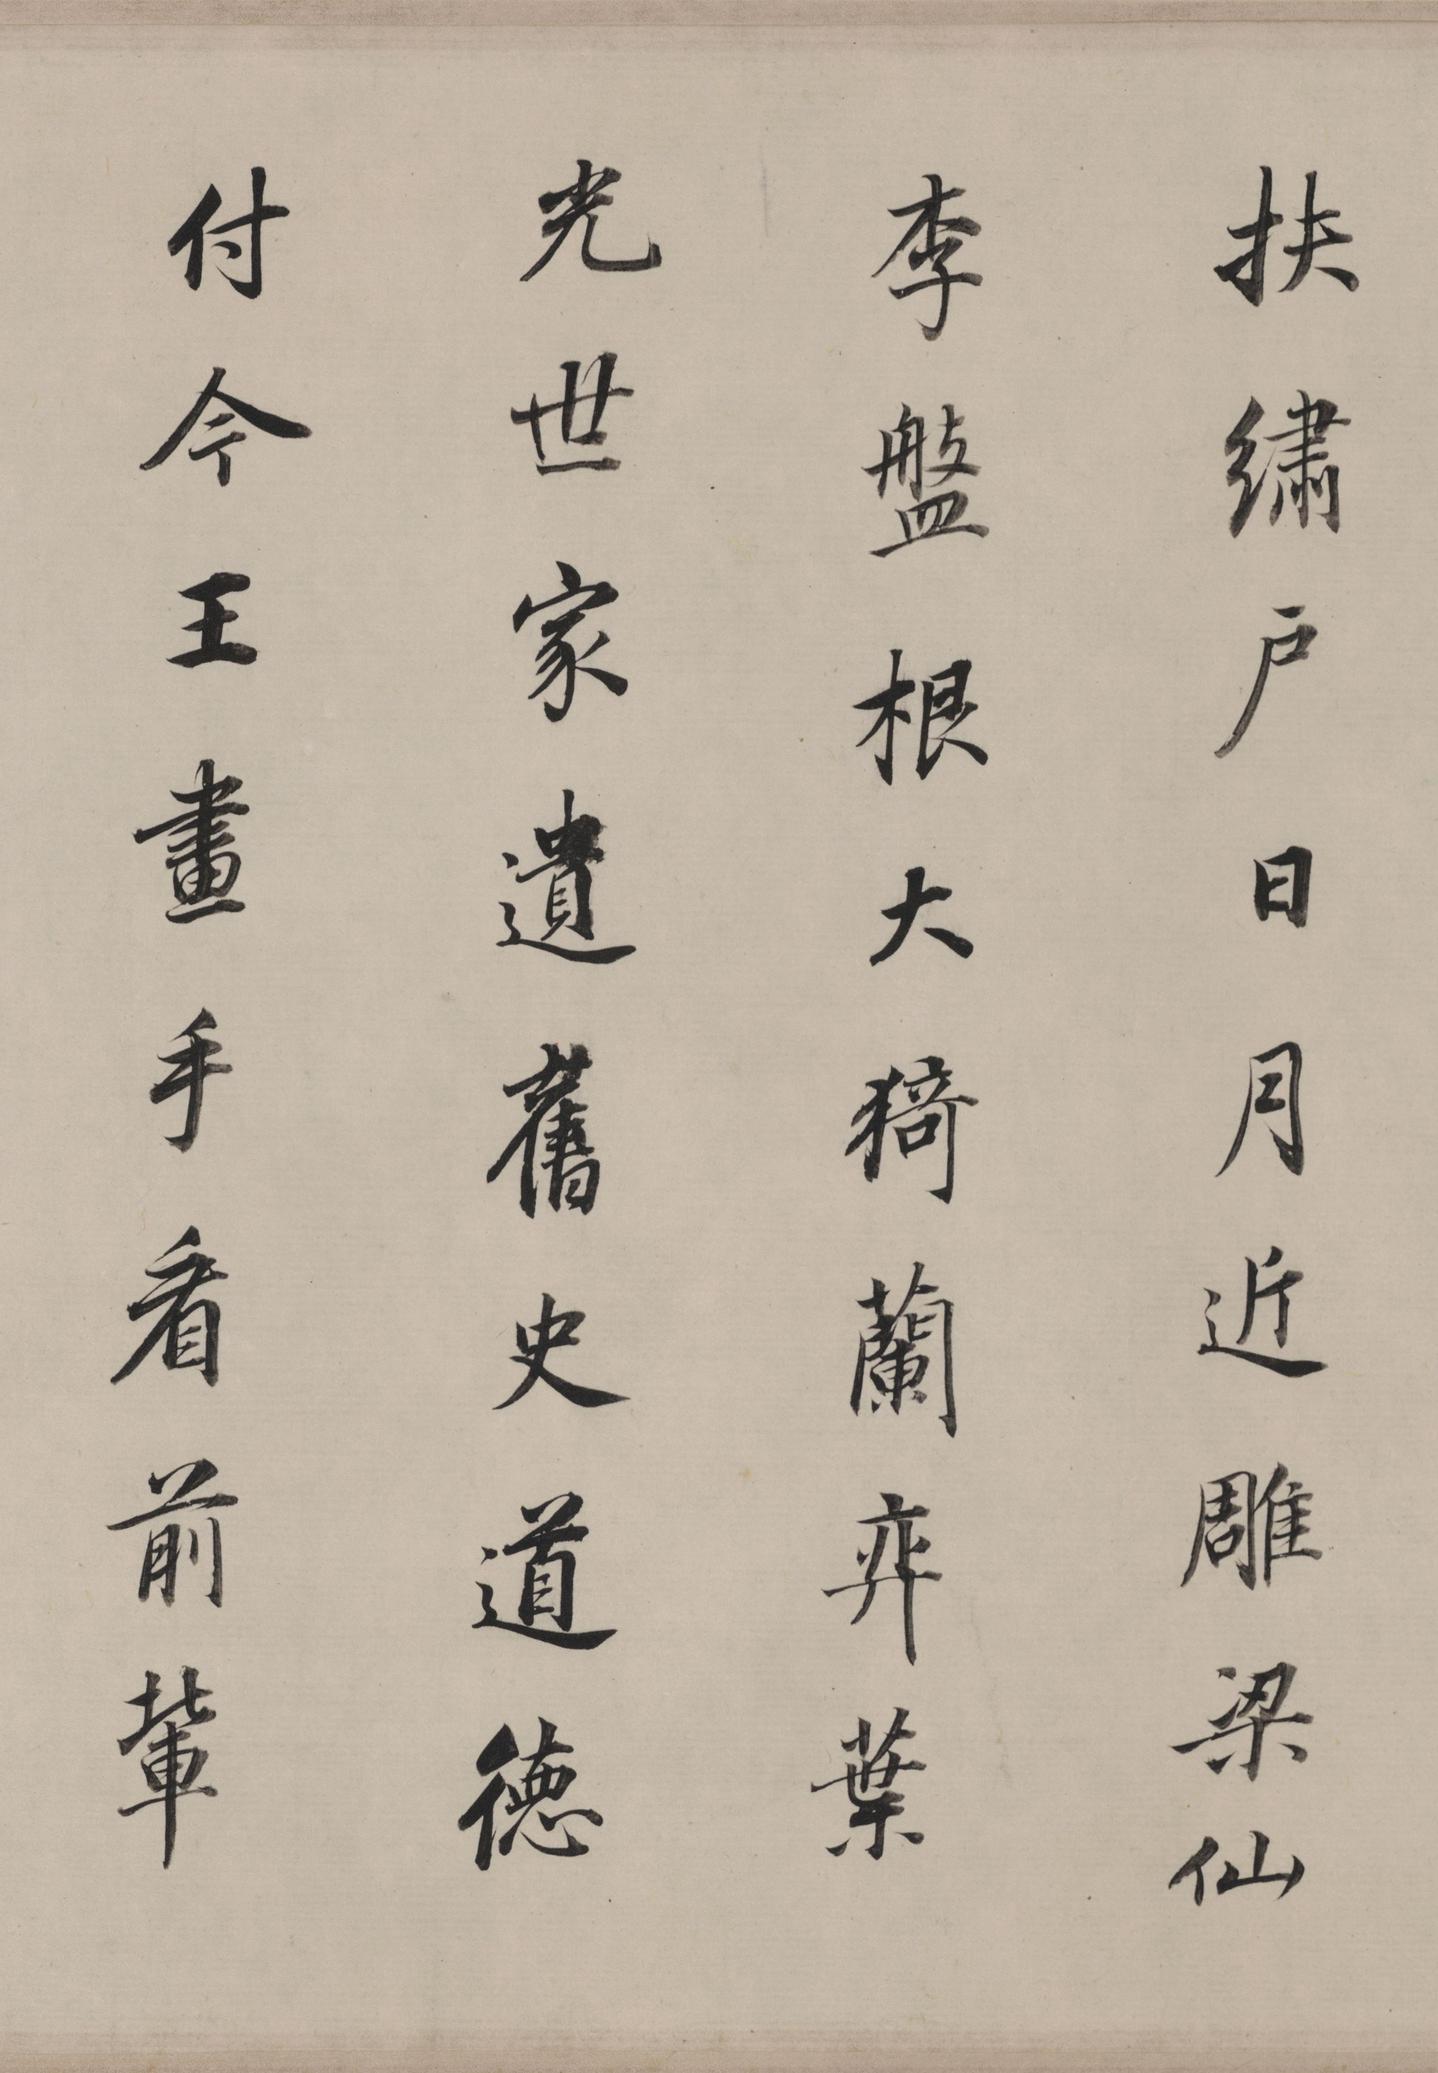 扶繡戶日月近雕梁仙
李盤根大猗蘭弈葉
光世家遺舊史道德
付今王畫手看前輩